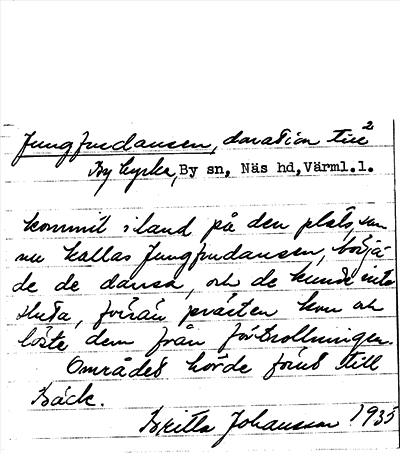 2
Jungfrudansen, donation till
By kyrka, By sn, Näs hd, Värml.l.
kommit i land på den plats, som
nu kallas Jungfrudansen, börja
de de dansa, och de kunde inte
sluta, förrän prästen kom och
löste dem från förtrollningen.
Området hörde förut till
Bäck.
Britta Johansson 1935